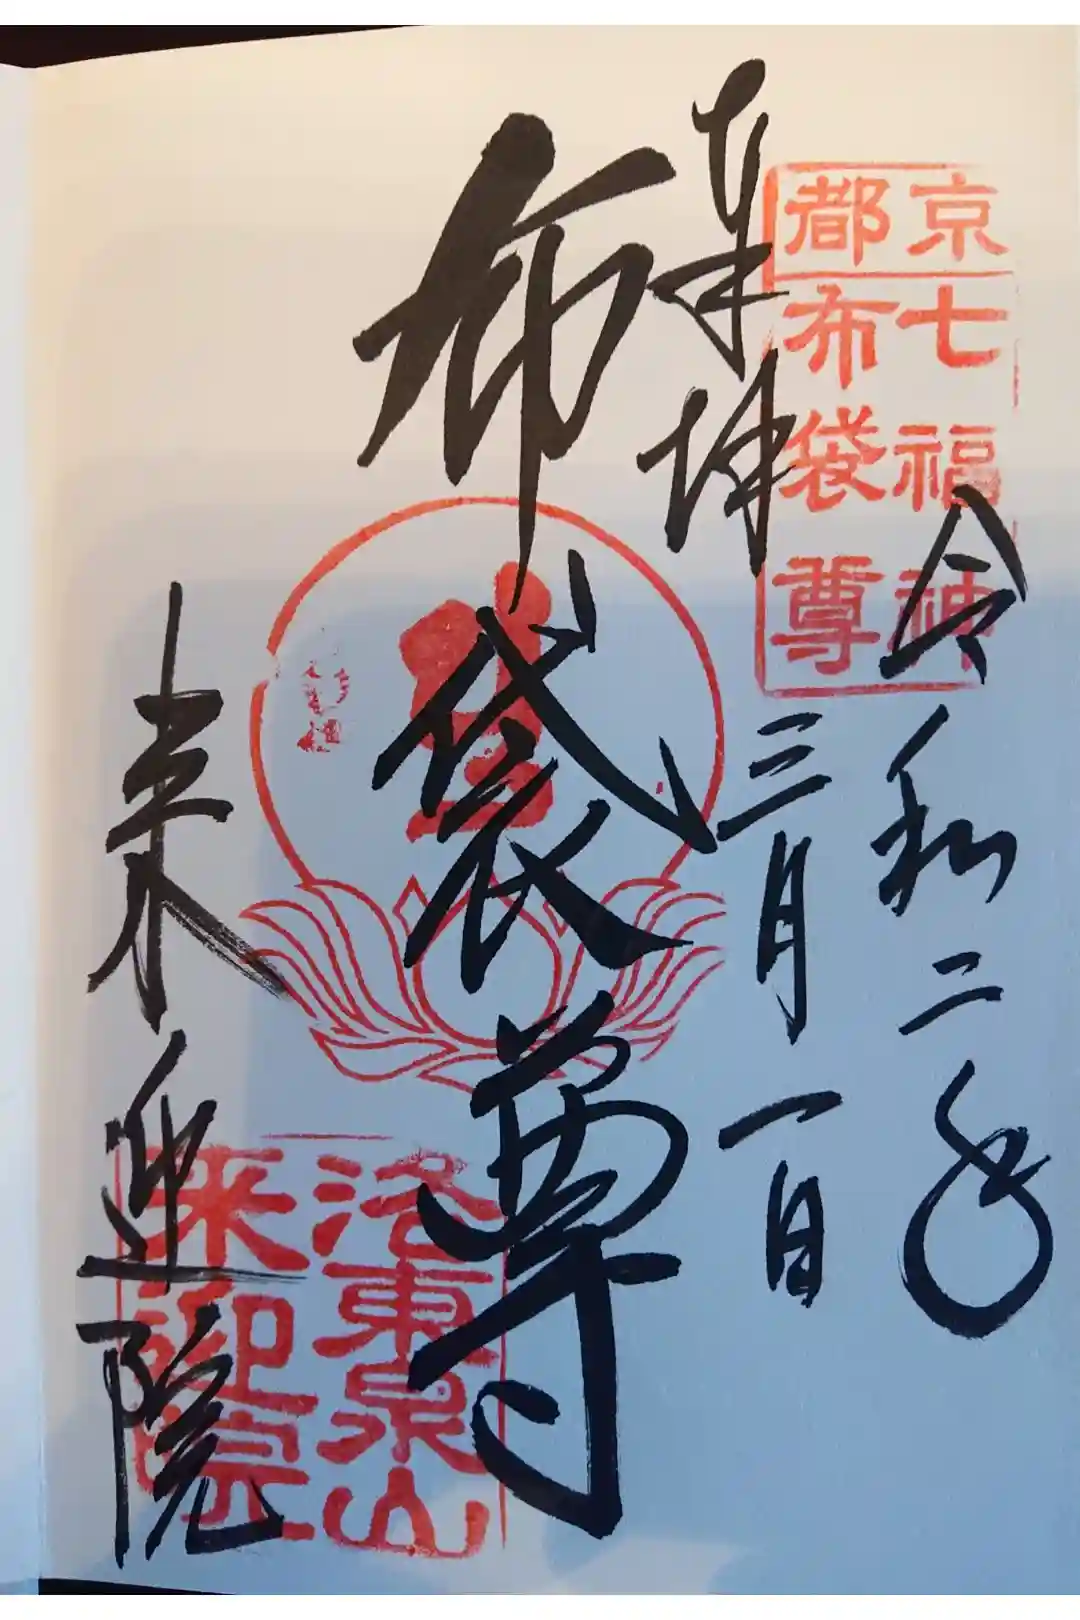 京都
七福神
布袋尊
奉拝
令和二年
三月一日
布袋尊
来迎院
洛東泉山
来迎院